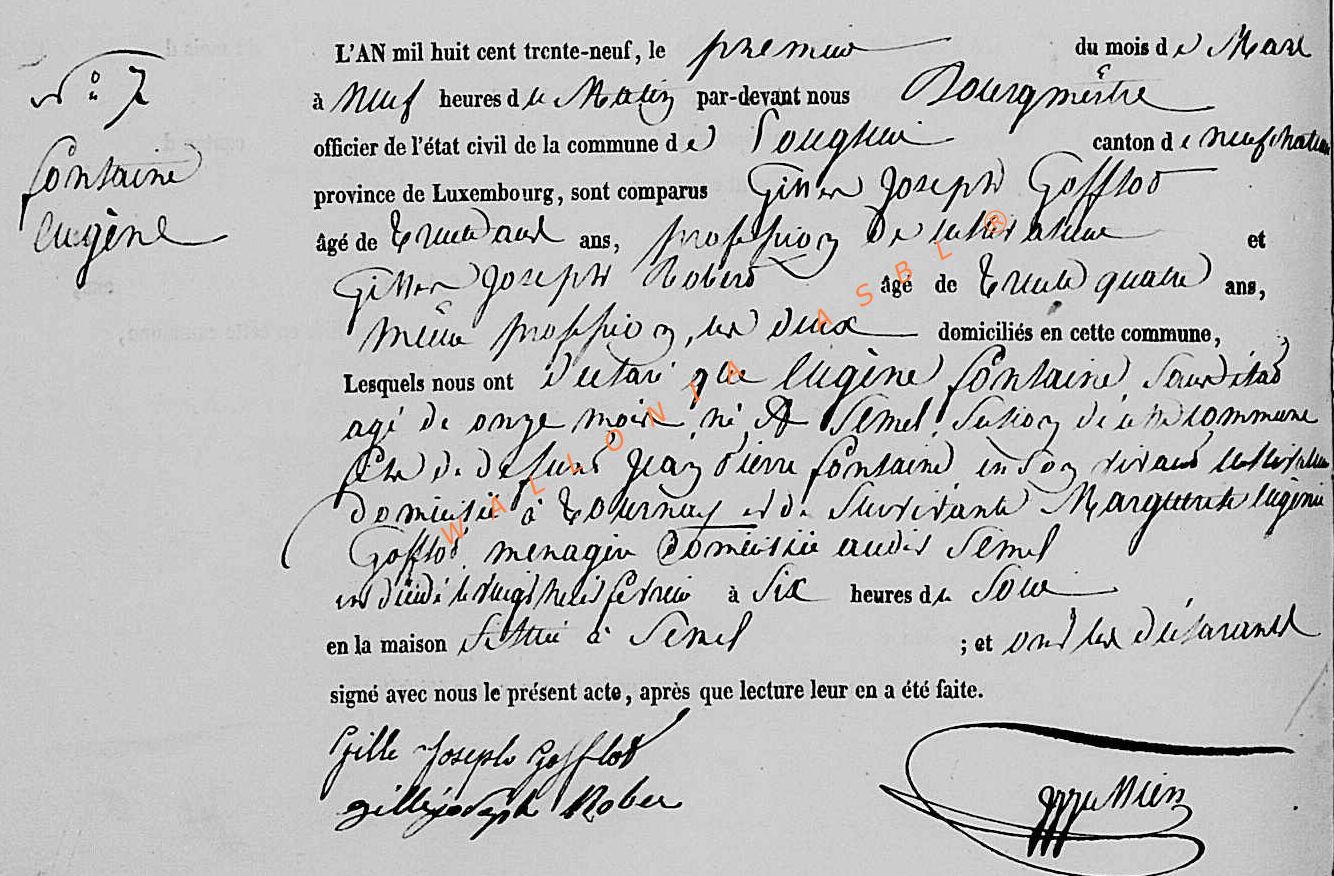 N° 7
fontaine
Eugène
L'AN mil huit cent trente-neuf, le premier du mois de Mars
à Neuf heures du Matin par-devant nous Bourgmêstre
officier de l'état civil de la commune de canton de neufchateau
province de Luxembourg, sont comparus Gilles Joseph Gofflot
âgé de ans, profession De cultivateur et
Gilles Joseph Robert âgé de trente quatre ans,
même profession, les deux domiciliés en cette commune,
Lesquels nous ont déclaré que Eugène fontaine
agé de onze mois, né à Semel, Section de cette commune
fils de defunt Jean Pierre fontaine en son vivant cultivateur
domicilié à Tournay et de Survivante Marguerite Eugénie
Gofflot, menagère domiciliée audit Semel
est décédé le vingt huit fevrier à Six heures du Soir
en la maison Sittuée à Semel ; et ont les déclarants
signé avec nous le présent acte, après que lecture leur en a été faite.
Gille Joseph Gofflot
gille joseph Rober
WALLONIA ASBL ®